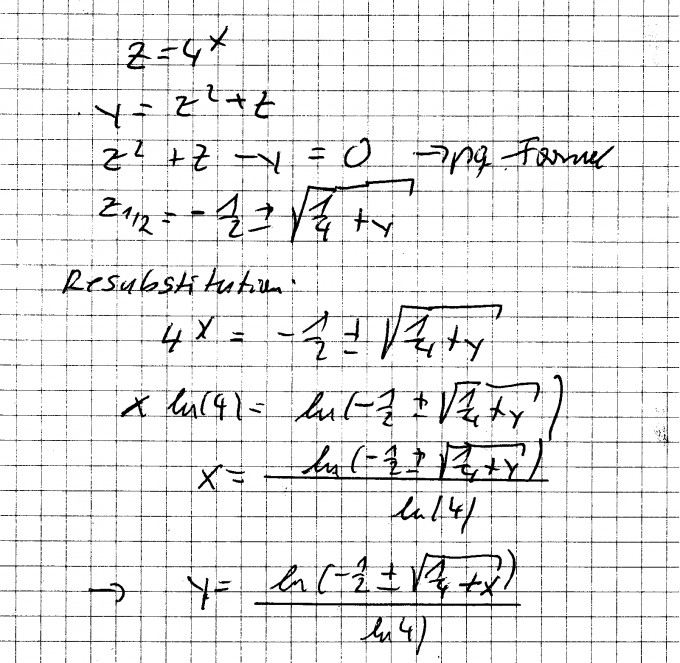 z = 4^x
y = z² + z
z² + z - y = 0 → pq Formel
z₁/₂ = - 1/2 ± √(1/4 + y)
Resubstitution:
4^x = - 1/2 ± √(1/4 + y)
x ln(4) = ln(- 1/2 ± √(1/4 + y))
x = ln(- 1/2 ± √(1/4 + y)) / ln(4)
→ y = ln(- 1/2 ± √(1/4 + x)) / ln 4)